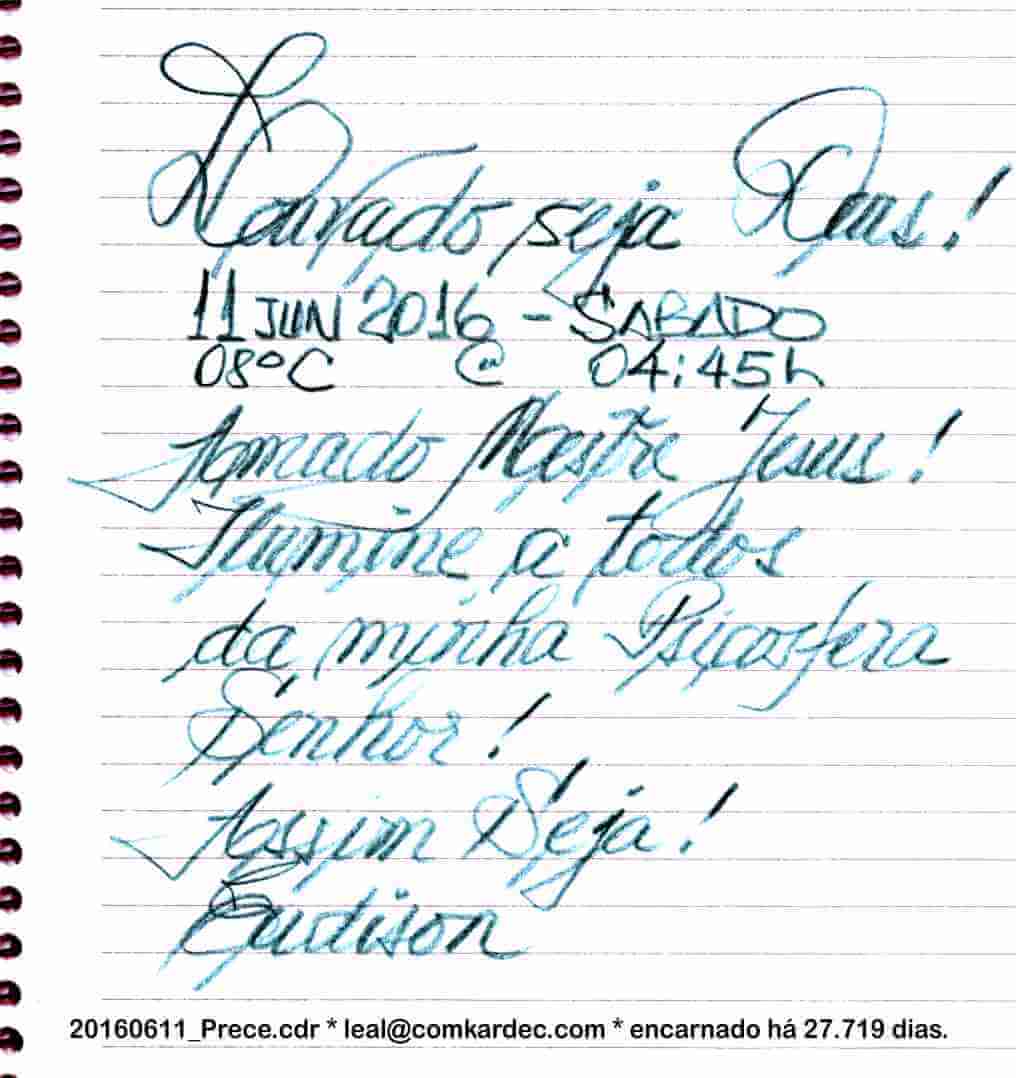 Louvado seja Deus!
11 JUN 2016 - SABADO
08°C @ 04:45h
Amado Mestre Jesus!
Ilumine a todos
da minha Psicosfera
Senhor!
Assim Seja!
Eudison
20160611_Prece.cdr * leal@comkardec.com * encarnado há 27.719 dias.